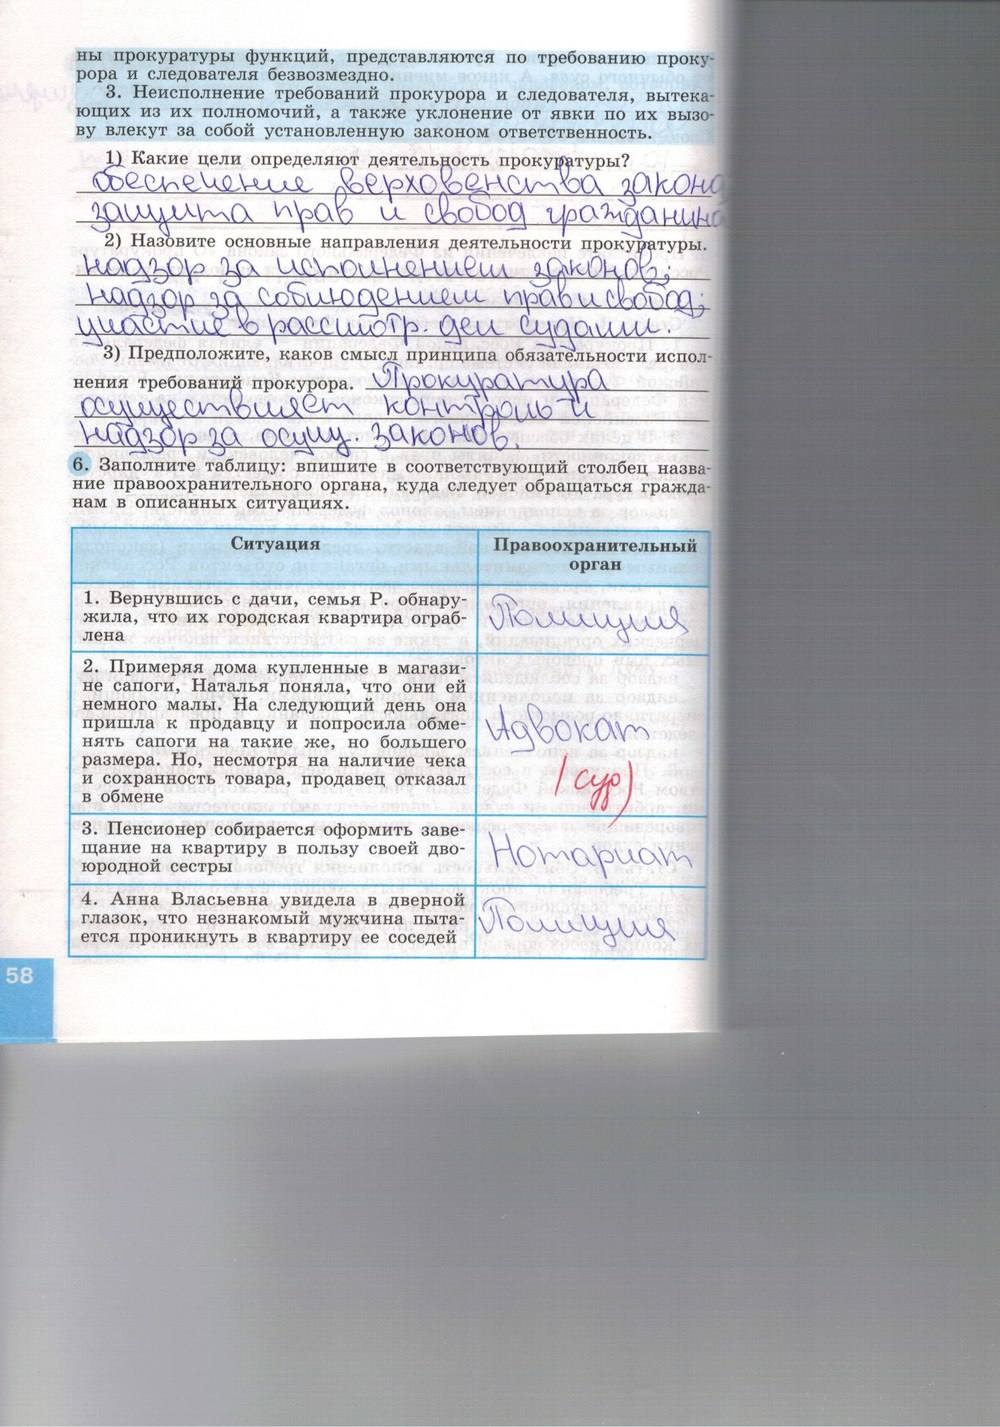 ны прокуратуры функций, представляются по требованию проку-
рора и следователя безвозмездно.
3. Неисполнение требований прокурора и следователя, вытека-
ющих из их полномочий, а также уклонение от явки по их вызо-
ву влекут за собой установленную законом ответственность.
1) Какие цели определяют деятельность прокуратуры?
обеспечение верховенства закона
защита прав и свобод гражданина
2) Назовите основные направления деятельности прокуратуры.
надзор за исполнением законов;
надзор за соблюдением прав и свобод;
участие в рассмотр. дел судами.
3) Предположите, каков смысл принципа обязательности испол-
нения требований прокурора. Прокуратура
осуществляет контроль и
надзор за осущ. законов.
6. Заполните таблицу: впишите в соответствующий столбец назва-
ние правоохранительного органа, куда следует обращаться гражда-
нам в описанных ситуациях.
Ситуация
Правоохранительный
орган
1. Вернувшись с дачи, семья Р. обнару-
жила, что их городская квартира ограб-
лена
Полиция
2. Примеряя дома купленные в магази-
не сапоги, Наталья поняла, что они ей
немного малы. На следующий день она
пришла к продавцу и попросила обме-
нять сапоги на такие же, но большего
размера. Но, несмотря на наличие чека
и сохранность товара, продавец отказал
в обмене
Адвокат
(суд)
3. Пенсионер собирается оформить заве-
щание на квартиру в пользу своей дво-
юродной сестры
Нотариат
4. Анна Власьевна увидела в дверной
глазок, что незнакомый мужчина пыта-
ется проникнуть в квартиру ее соседей
Полиция
58